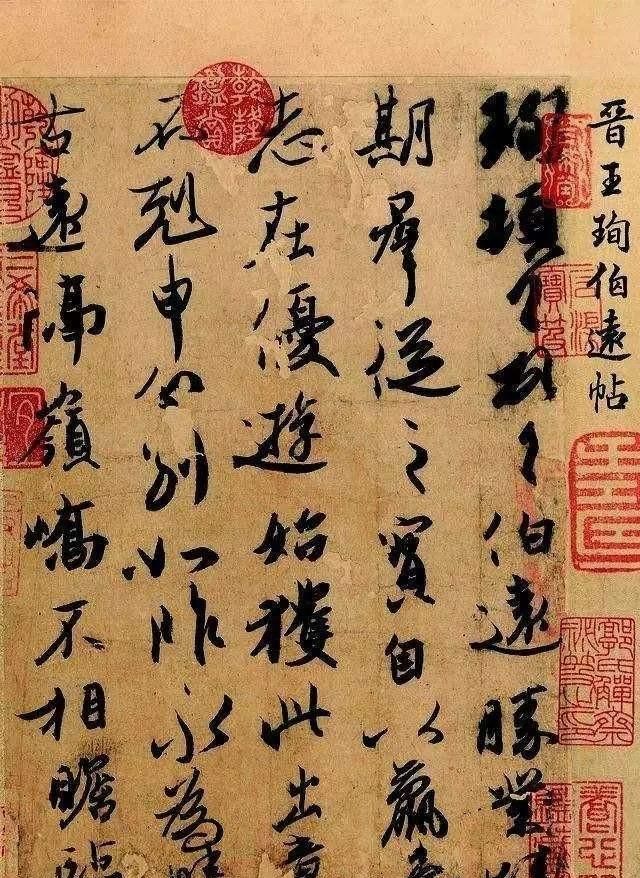 晉王珣伯遠帖
珣頓首頓首伯遠勝業情
期羣從之寶自以羸
志在優遊始獲此出意
不剋申分別如昨永為
古遠隔嶺嶠不相瞻臨
乾隆鑑賞